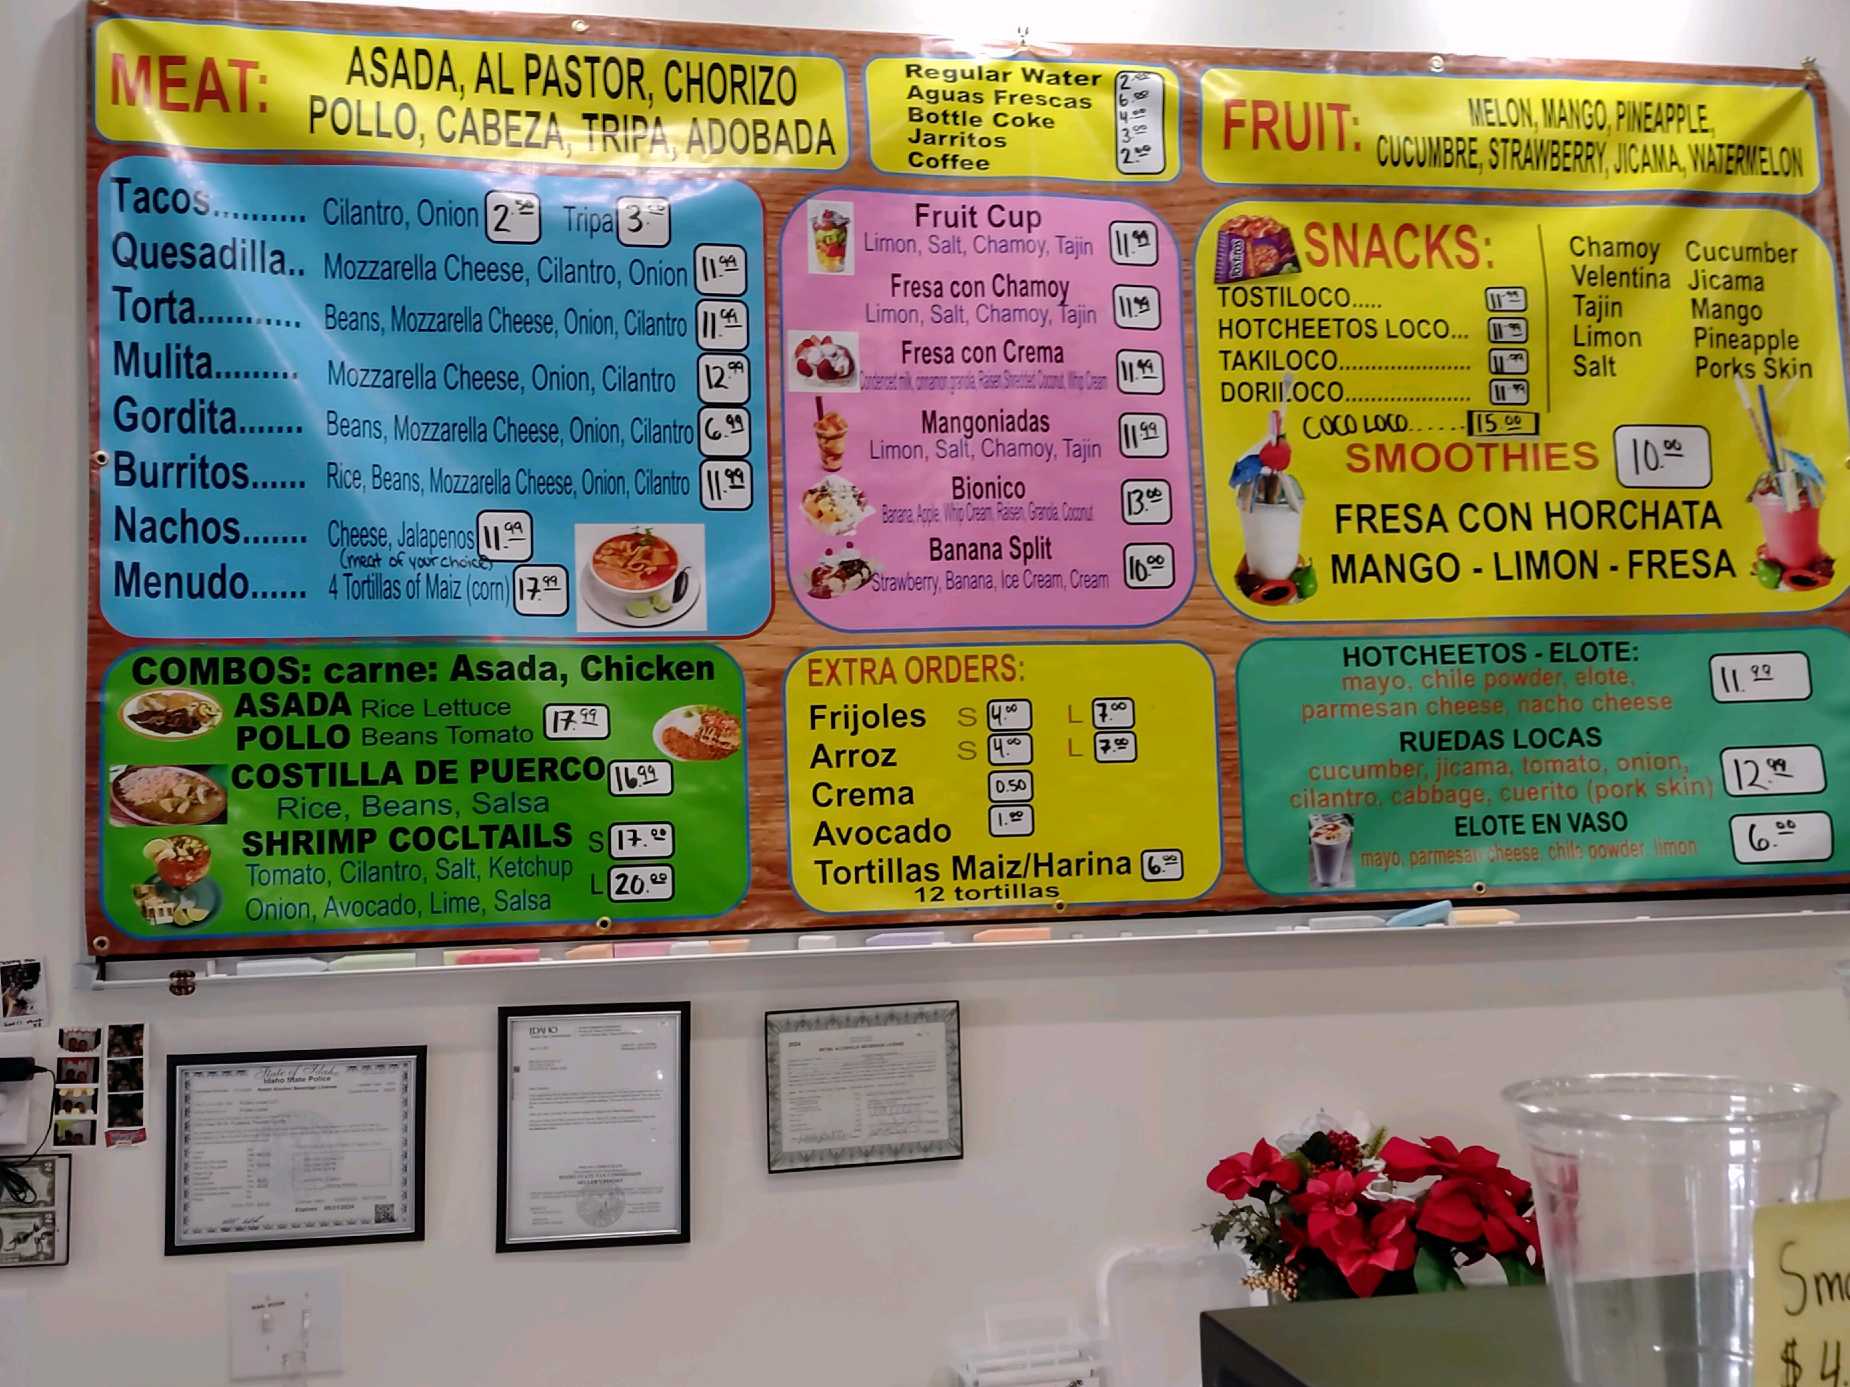 MEAT:
ASADA, AL PASTOR, CHORIZO
POLLO, CABEZA, TRIPA, ADOBADA
Regular Water 2.00
Aguas Frescas 6.00
Bottle Coke 4.00
Jarritos 3.00
Coffee 2.00
FRUIT:
MELON, MANGO, PINEAPPLE,
CUCUMBRE, STRAWBERRY, JICAMA, WATERMELON
Tacos.......... Cilantro, Onion 2.50 Tripa 3.00
Quesadilla.. Mozzarella Cheese, Cilantro, Onion 11.99
Torta........... Beans, Mozzarella Cheese, Onion, Cilantro 11.99
Mulita......... Mozzarella Cheese, Onion, Cilantro 12.99
Gordita....... Beans, Mozzarella Cheese, Onion, Cilantro 6.99
Burritos...... Rice, Beans, Mozzarella Cheese, Onion, Cilantro 11.99
Nachos....... Cheese, Jalapenos 11.99
(meat of your choice)
Menudo...... 4 Tortillas of Maiz (corn) 17.99
Fruit Cup
Limon, Salt, Chamoy, Tajin 11.99
Fresa con Chamoy
Limon, Salt, Chamoy, Tajin 11.99
Fresa con Crema
Condenced milk, cinnamon, granola, Raisen, Shredded Coconut, Whip Cream 11.99
Mangoniadas
Limon, Salt, Chamoy, Tajin 11.99
Bionico
Banana, Apple, Whip Cream, Raisen, Granola, Coconut 13.00
Banana Split
Strawberry, Banana, Ice Cream, Cream 10.00
SNACKS:
TOSTILOCO..... 11.99
HOTCHEETOS LOCO... 11.99
TAKILOCO..................... 11.99
DORILOCO.................... 11.99
COCO LOCO...... 15.00
Chamoy Cucumber
Velentina Jicama
Tajin Mango
Limon Pineapple
Salt Porks Skin
SMOOTHIES 10.00
FRESA CON HORCHATA
MANGO - LIMON - FRESA
COMBOS: carne: Asada, Chicken
ASADA Rice Lettuce
POLLO Beans Tomato 17.99
COSTILLA DE PUERCO 16.99
Rice, Beans, Salsa
SHRIMP COCLTAILS S 17.00
Tomato, Cilantro, Salt, Ketchup
L 20.00
Onion, Avocado, Lime, Salsa
EXTRA ORDERS:
Frijoles S 4.00 L 7.00
Arroz S 4.00 L 7.00
Crema 0.50
Avocado 1.00
Tortillas Maiz/Harina 6.00
12 tortillas
HOTCHEETOS - ELOTE:
mayo, chile powder, elote,
parmesan cheese, nacho cheese 11.99
RUEDAS LOCAS
cucumber, jicama, tomato, onion,
cilantro, cabbage, cuerito (pork skin) 12.99
ELOTE EN VASO
mayo, parmesan cheese, chile powder, limon 6.00
State of Idaho
Idaho State Police
IDAHO
2024
$ 4.